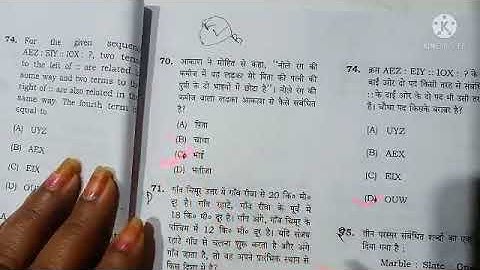 74. For the given sequenc
AEZ : EIY :: IOX : ?, two ter
to the left of :: are related i
same way and two terms to the
right of :: are also related in the
same way. The fourth term i
equal to
(A) UYZ
(B) AEX
(C) EIX
(D) OUW
70. आकाश ने मोहित से कहा, "नीले रंग की
कमीज में वह लड़का मेरे पिता की पत्नी की
पुत्री के दो भाइयों में छोटा है"। नीले रंग की
कमीज वाला लड़का आकाश से कैसे संबंधित
है?
(A) पिता
(B) चाचा
(C) भाई
(D) भतीजा
71. गाँव चिमूर उत्तर में गाँव रीवा से 20 कि० मी०
दूर है। गाँव रहाटे, गाँव रीवा के पूर्व में
18 कि० मी० दूर है। गाँव आंगे, गाँव चिमूर के
पश्चिम में 12 कि० मी० दूर है। यदि संजय
रहाटे गाँव से चलना शुरू करता है और आंगे
गाँव जाता है, तो वह अपने प्रारंभिक स्थान से
किस दिशा में है?
74. क्रम AEZ : EIY :: IOX : ? के
बाईं ओर दो पद किसी तरह से संबंधि
:: के दाईं ओर के दो पद भी उसी तर
हैं। चौथा पद किसके बराबर है?
(A) UYZ
(B) AEX
(C) EIX
(D) OUW
75. तीन परस्पर संबंधित शब्दों का एक
दिया गया है :
Marble : Slate One
KINEMASTER